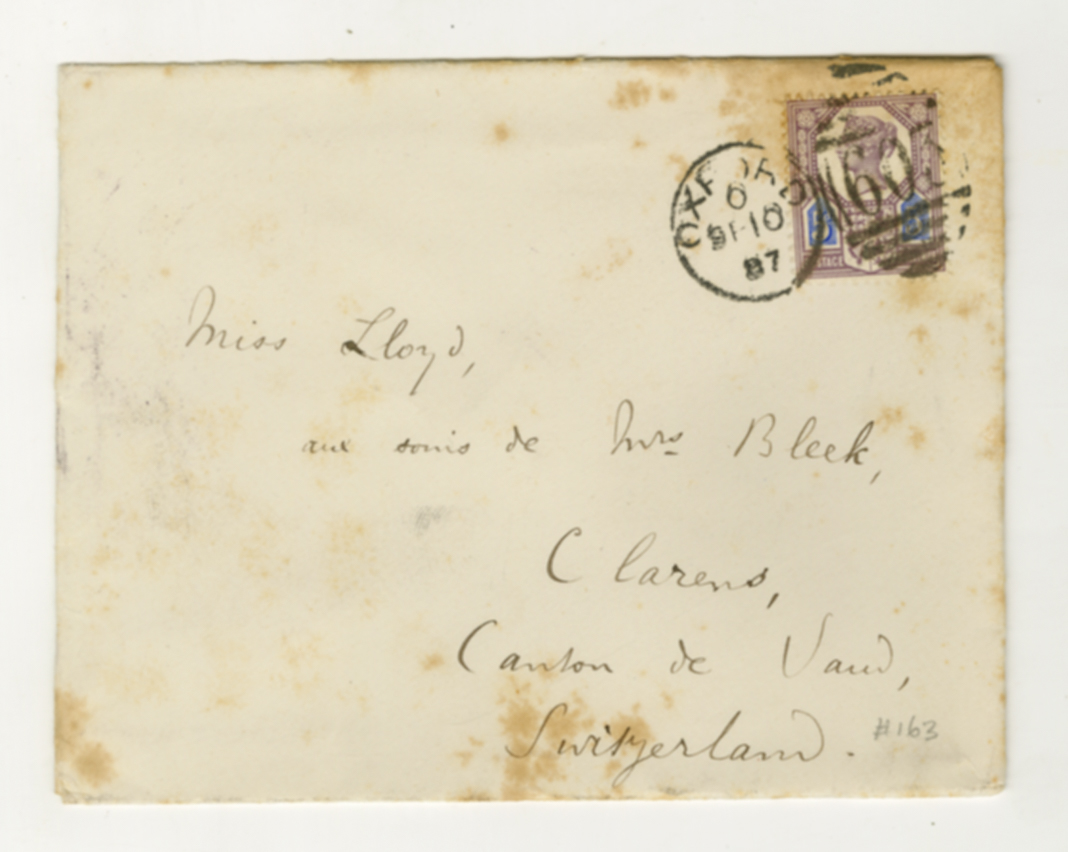 OXFORD
6
SP 10
87
603
5
POSTAGE
Miss Lloyd,
aux soins de Mrs Bleek,
Clarens,
Canton de Vaud,
Switzerland.
#163